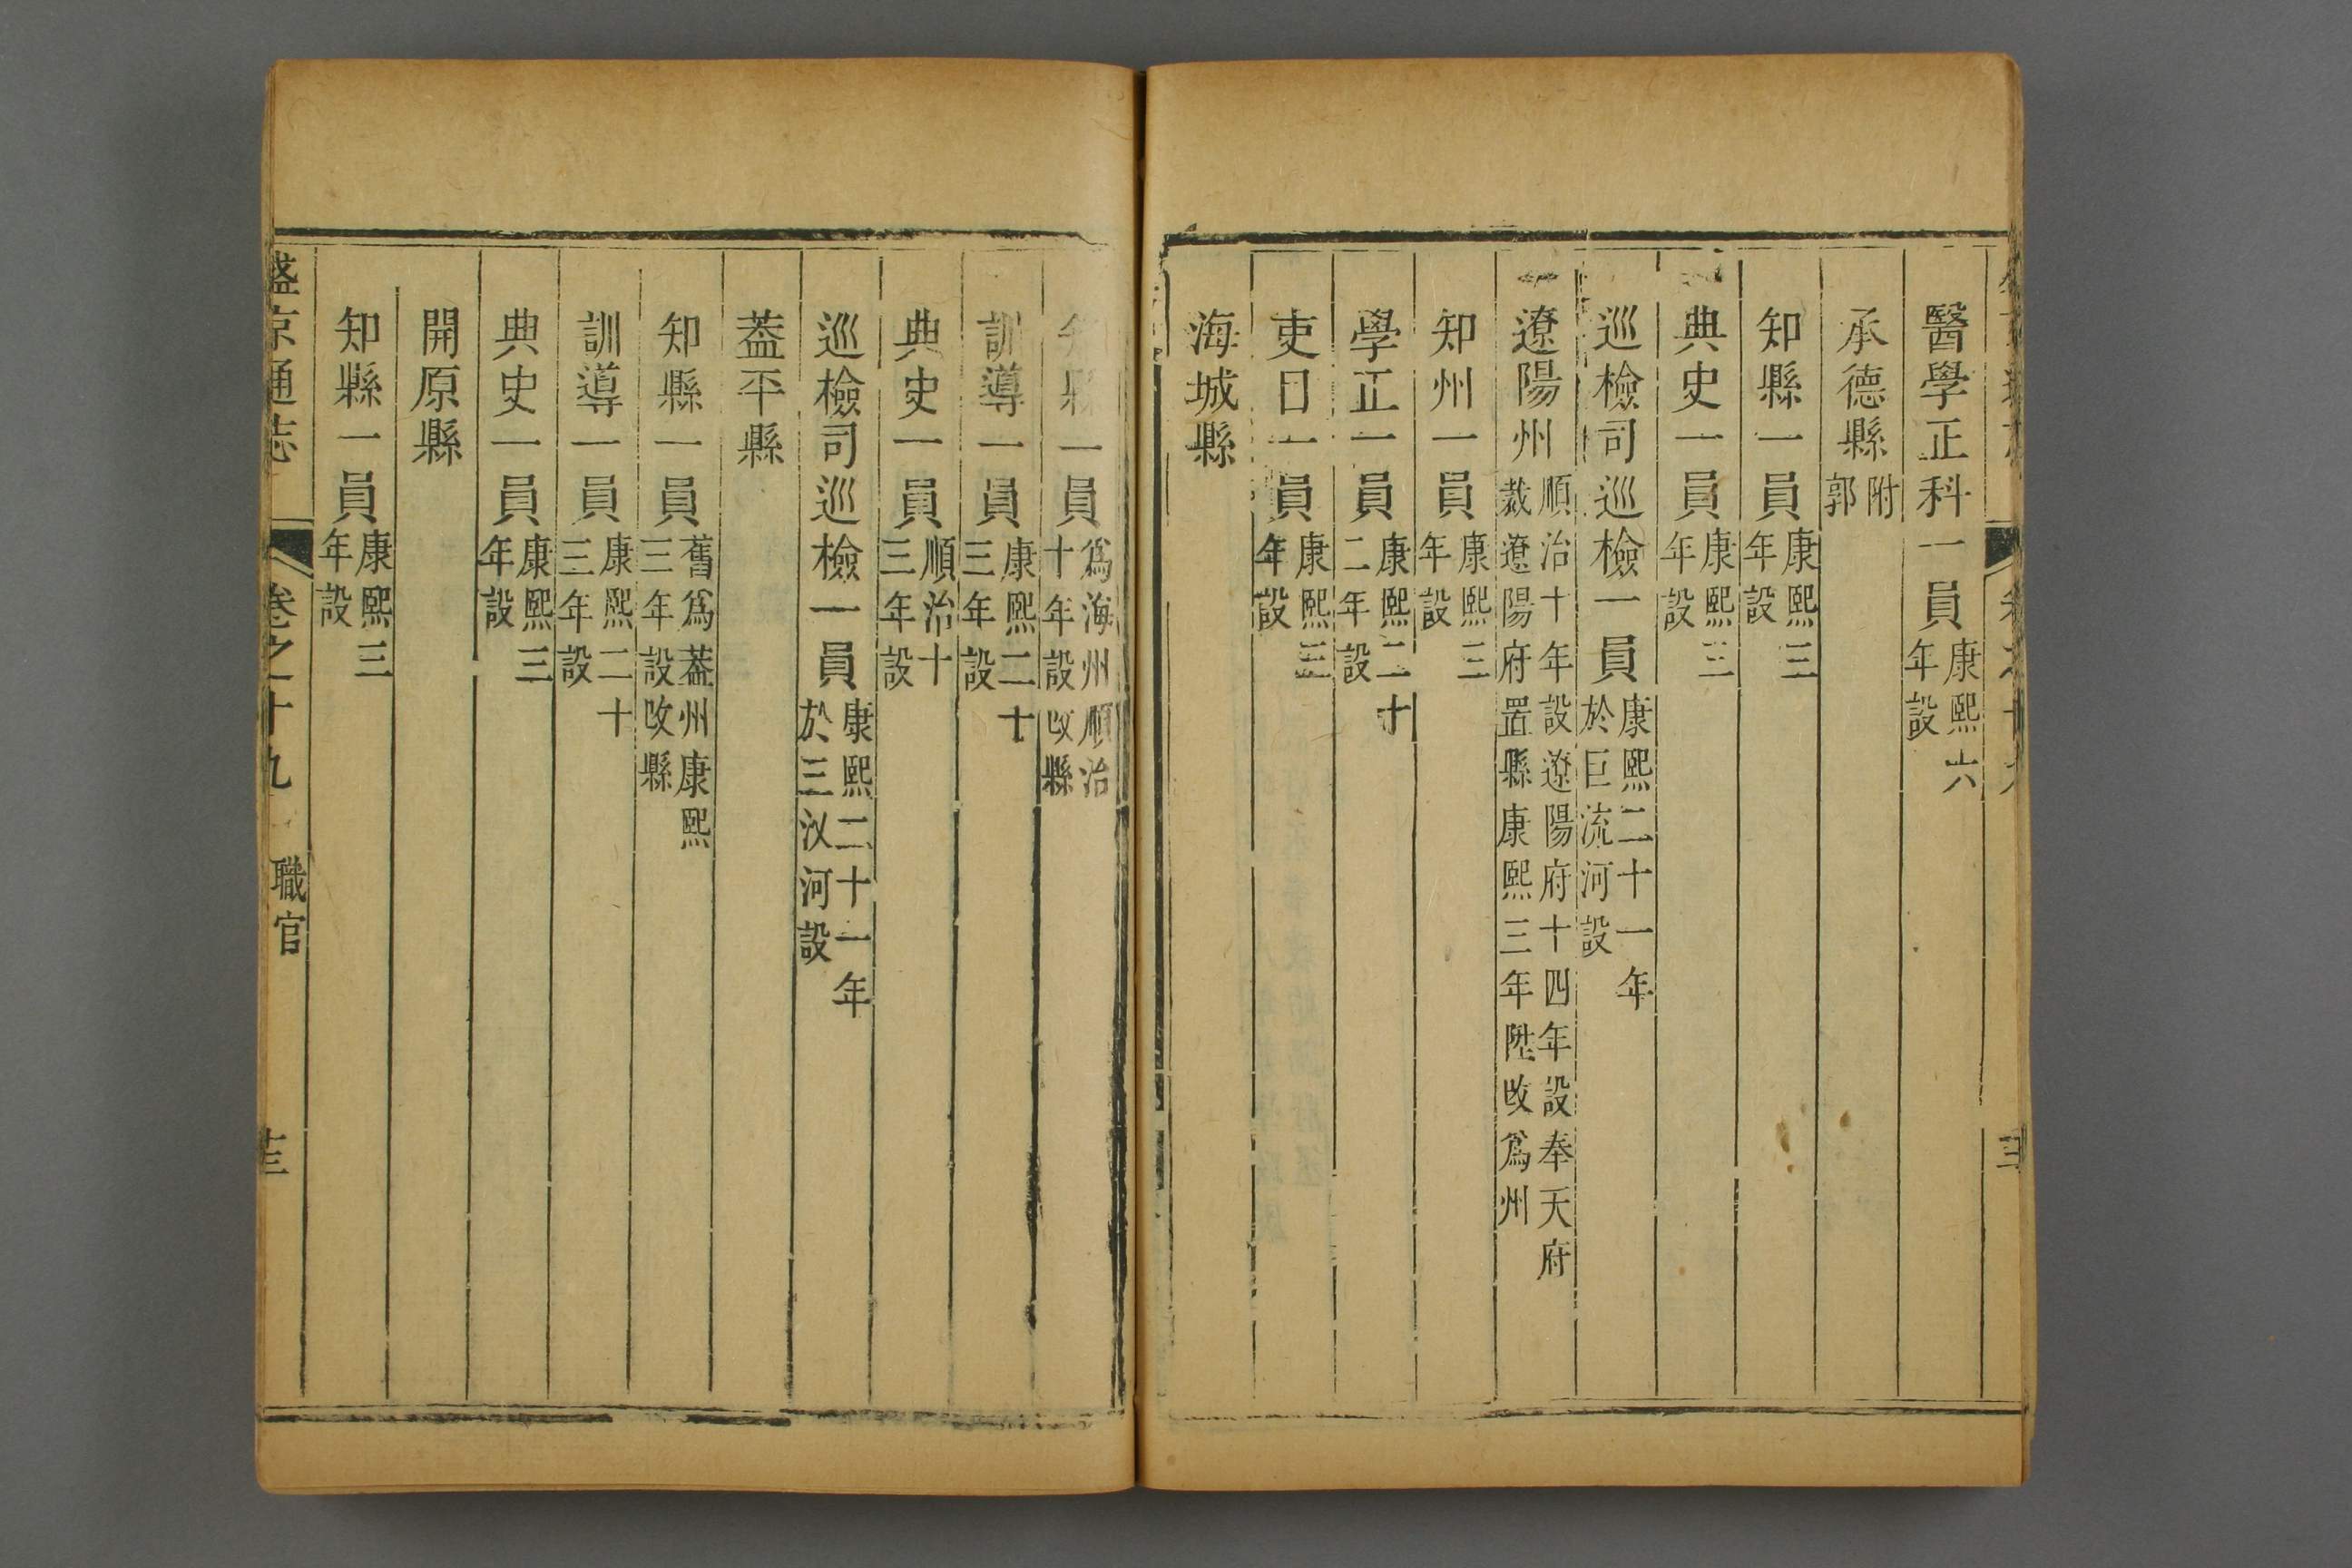 醫學正科一員康熙六年設
承德縣附郭
知縣一員康熙三年設
典史一員康熙三年設
巡檢司巡檢一員康熙二十一年於巨流河設
遼陽州順治十年設遼陽府十四年設奉天府裁遼陽府置縣康熙三年陞改為州
知州一員康熙三年設
學正一員康熙二十二年設
吏目一員康熙三年設
海城縣
知縣一員為海州順治十年設改縣
訓導一員康熙二十三年設
典史一員順治十三年設
巡檢司巡檢一員康熙二十一年於三汊河設
葢平縣
知縣一員舊為葢州康熙三年設改縣
訓導一員康熙二十三年設
典史一員康熙三年設
開原縣
知縣一員康熙三年設
盛京通志 卷之十九 職官